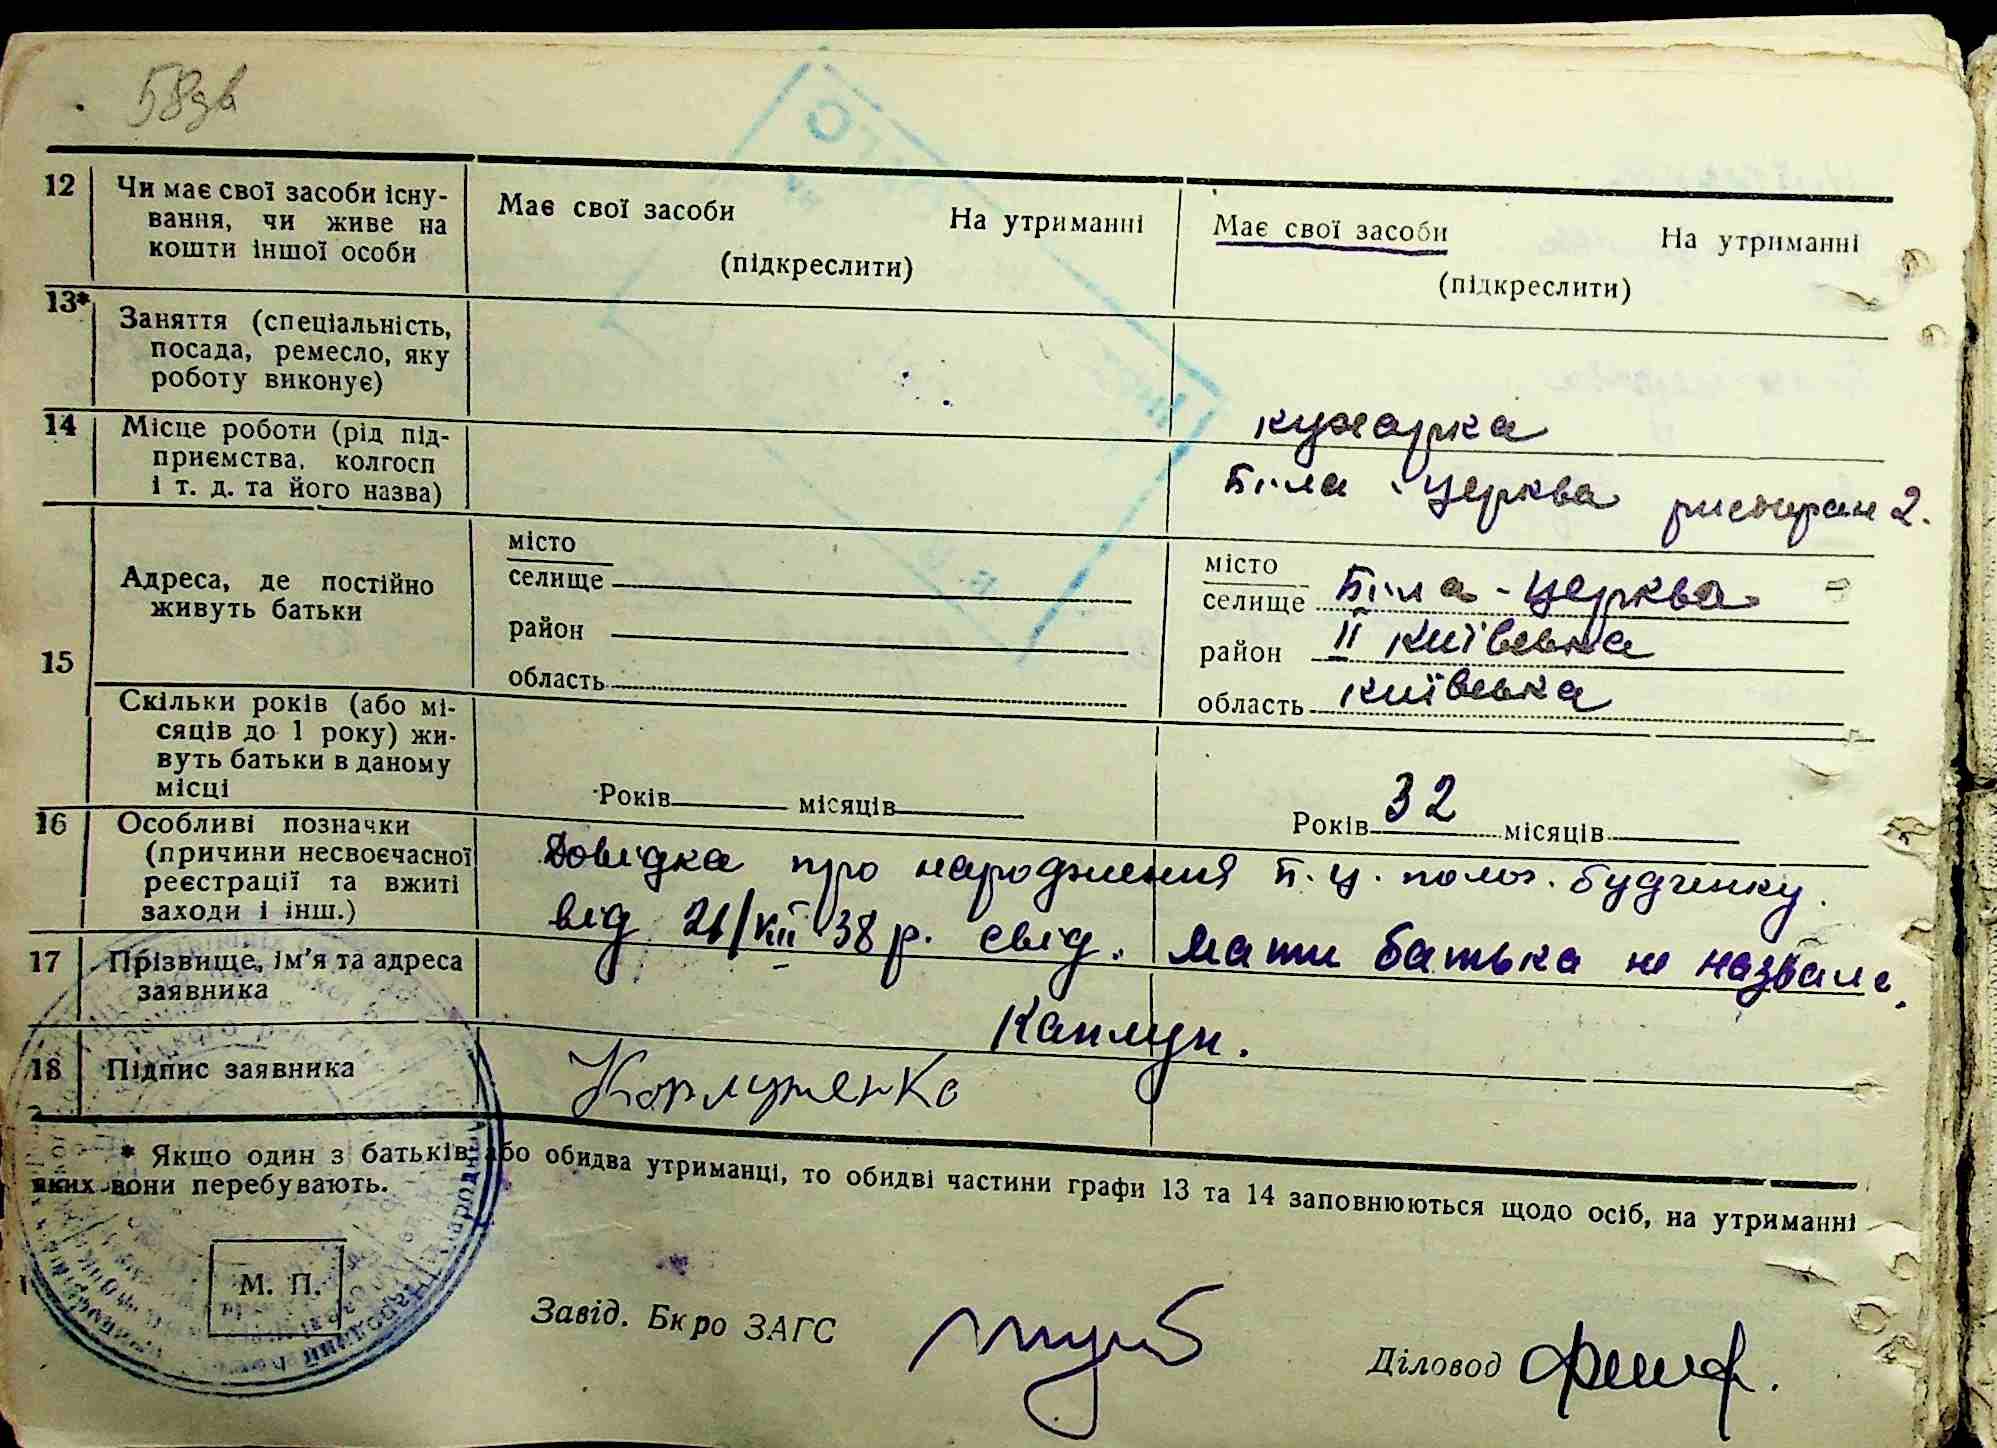 58зв
12 Чи має свої засоби існу-
вання, чи живе на
кошти іншої особи
Має свої засоби На утриманні
(підкреслити)
Має свої засоби На утриманні
(підкреслити)
13* Заняття (спеціальність,
посада, ремесло, яку
роботу виконує)
кухарка
14 Місце роботи (рід під-
приємства, колгосп
і т. д. та його назва)
Біла-Церква 2.
15 Адреса, де постійно
живуть батьки
місто
селище
район
область
місто
селище Біла-Церква
район II Київська
область Київська
Скільки років (або мі-
сяців до 1 року) жи-
вуть батьки в даному
місці
Років місяців
Років 32 місяців
16 Особливі позначки
(причини несвоєчасної
реєстрації та вжиті
заходи і інш.)
Довідка про народження Б.Ц. полог. будинку.
від 21/XII 38 р. свід. Мати батька не назвала.
17 Прізвище, ім'я та адреса
заявника
Каплун.
18 Підпис заявника
* Якщо один з батьків або обидва утриманці, то обидві частини графи 13 та 14 заповнюються щодо осіб, на утриманні
яких вони перебувають.
М. П.
Завід. Бкро ЗАГС
Діловод